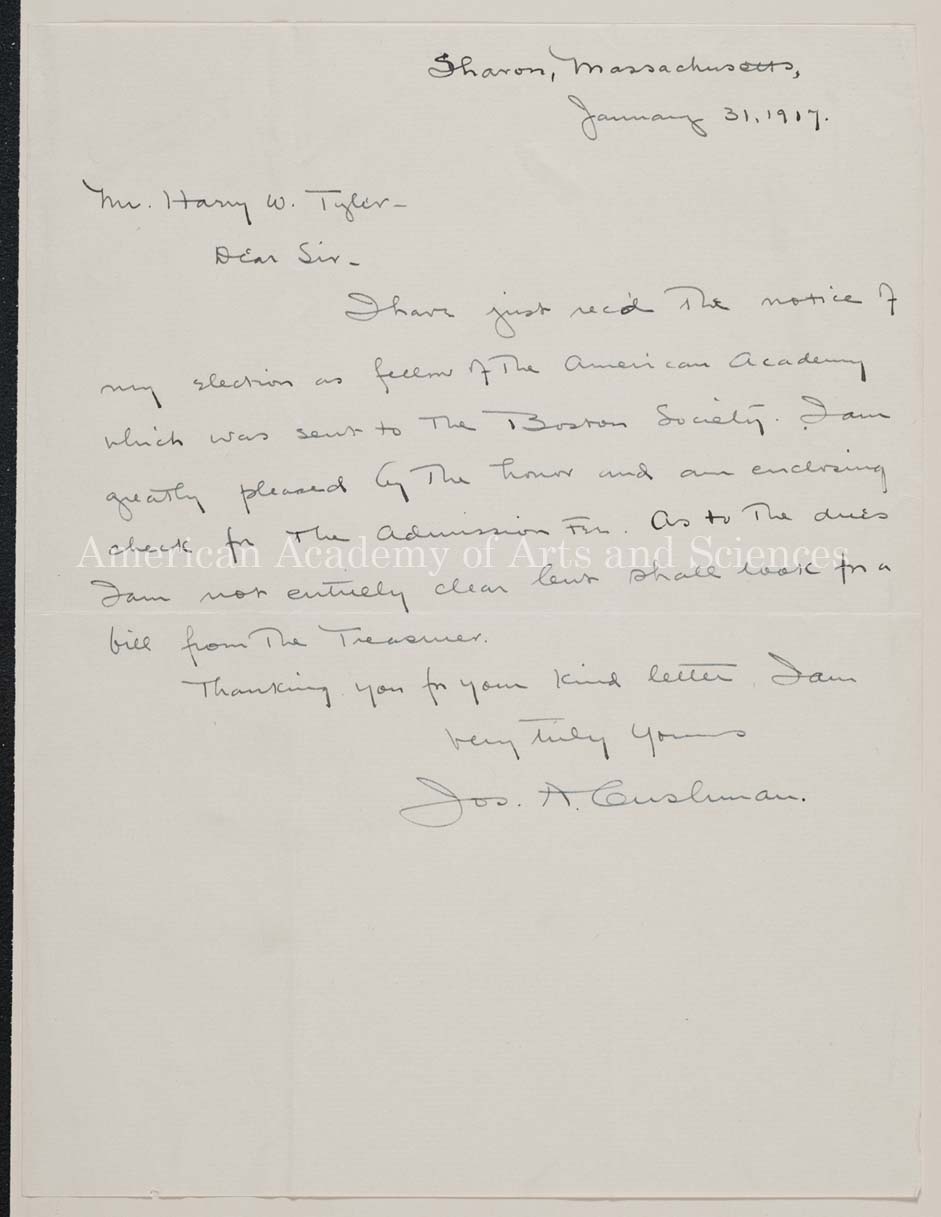 Sharon, Massachusetts,
January 31, 1917.
Mr. Harry W. Tyler –
Dear Sir –
I have just rec'd the notice of
my election as fellow of the American Academy
which was sent to the Boston Society. I am
greatly pleased by the honor and am enclosing
check for the Admission Fee. As to the dues
American Academy of Arts and Sciences
I am not entirely clear but shall look for a
bill from the Treasurer.
Thanking you for your kind letter, I am
Very truly yours
Jos. A. Cushman.